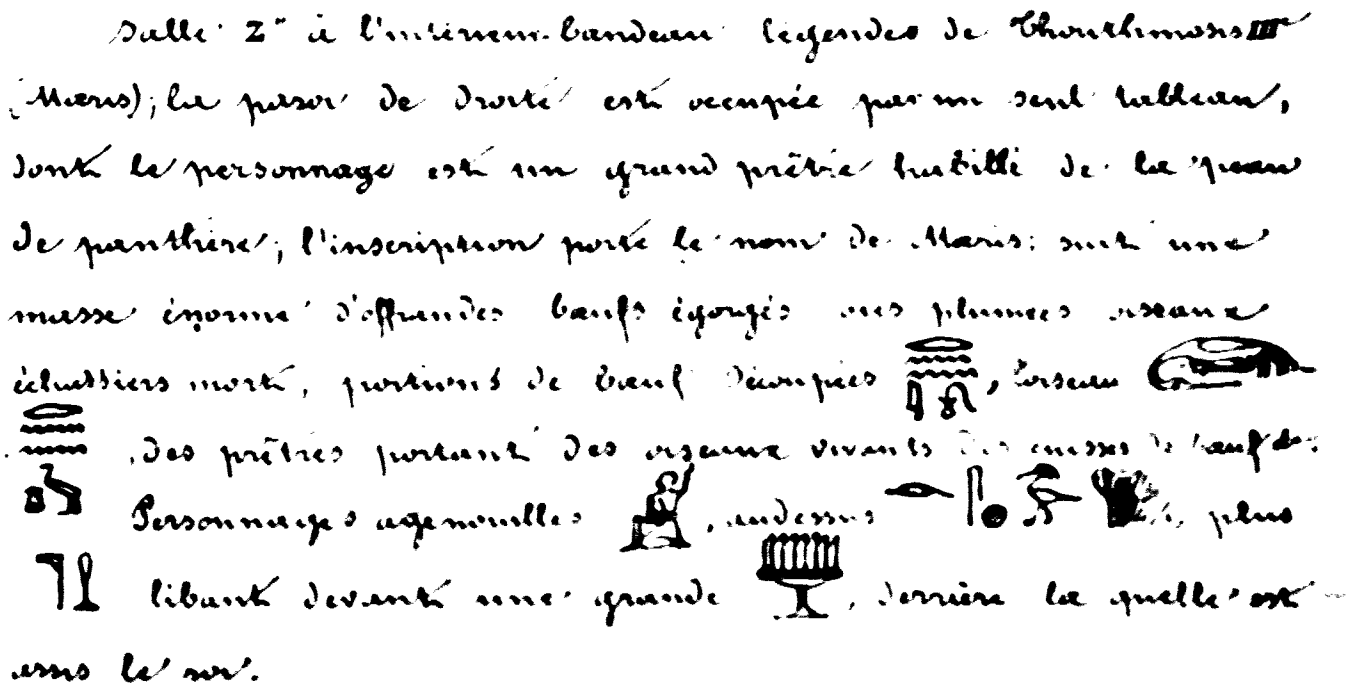 Salle Z" à l'intérieur. bandeau légendes de Thouthmosis III
(Mœris); la paroi de droite est occupée par un seul tableau,
dont le personnage est un grand prêtre habillé de la peau
de panthère; l'inscription porte le nom de Mœris: suit une
masse énorme d'offrandes bœufs égorgés oies plumées oiseaux
échassiers morts, portions de bœuf découpées , l'oiseau
, des prêtres portant des oiseaux vivants des cuisses de bœuf de.
Personnages agenouillés , audessus , plus
libant devant une grande , derrière la quelle est
assis le roi.